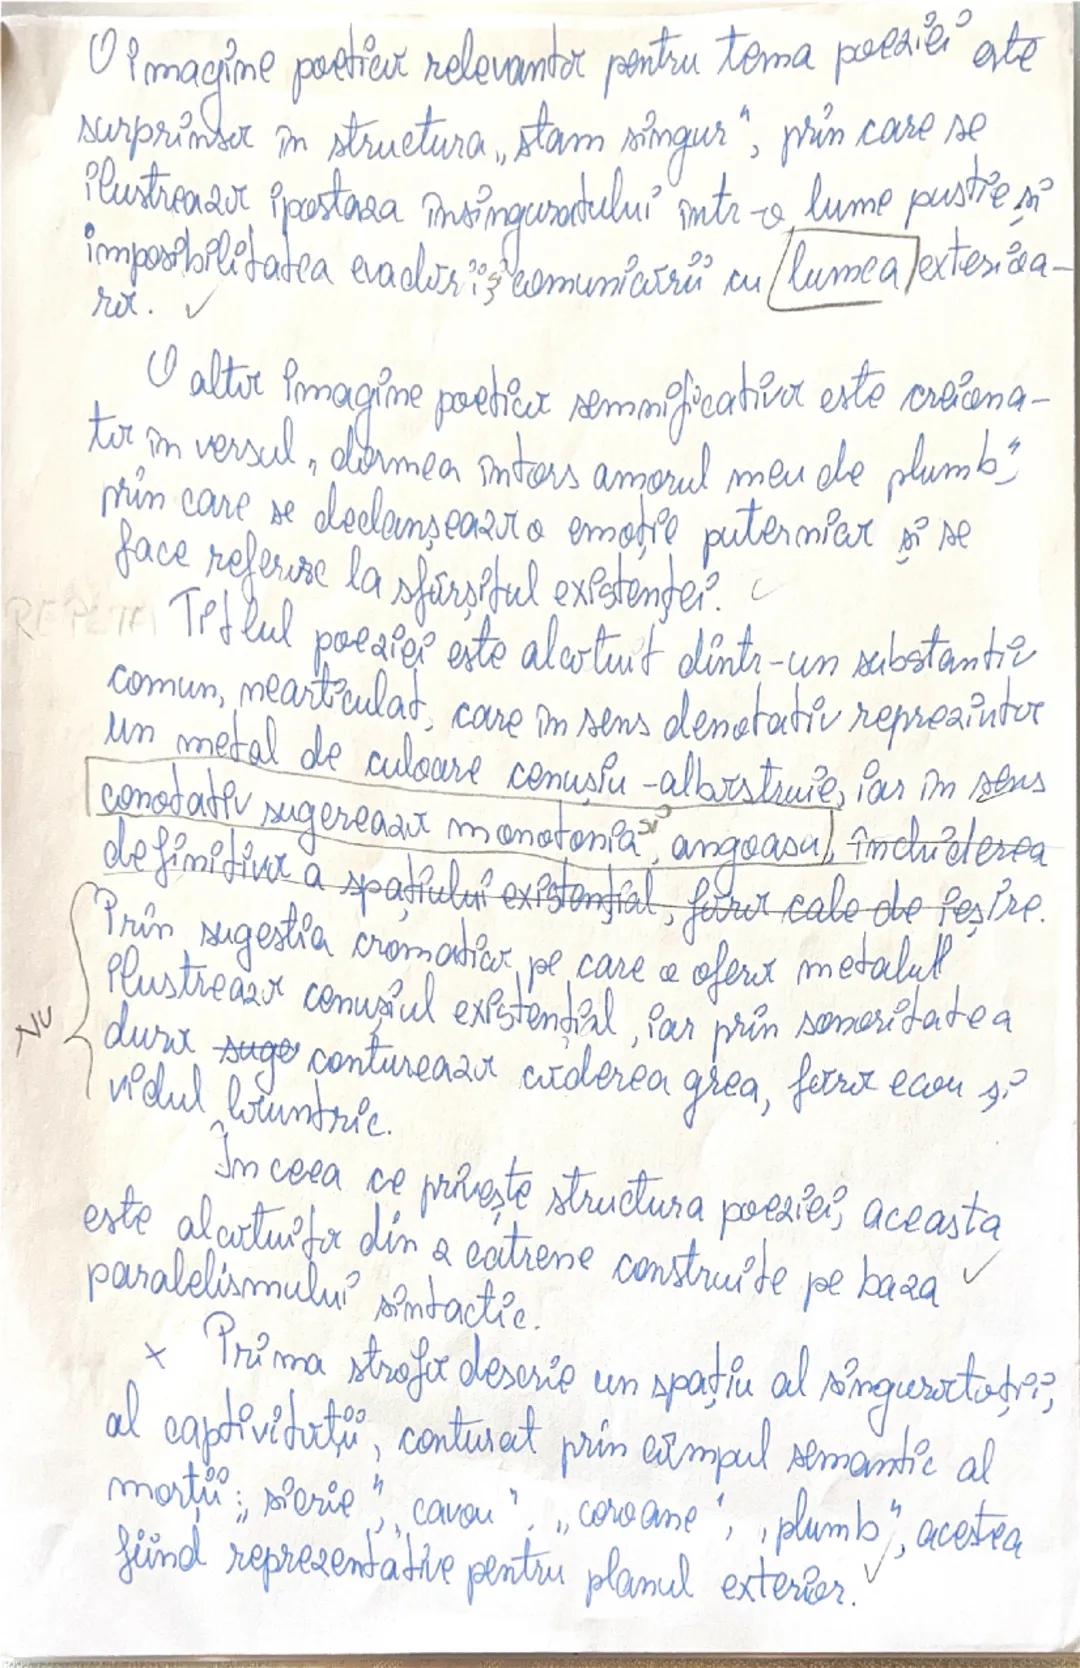 O imagine poetică relevantă pentru tema poeziei este
surprinsă în structura „stam singur", prin care se
ilustrează ipostaza însinguratului într-o lume pustie și
imposibilitatea evadării, comunicării cu lumea exterioa-
ră. ✓
O altă imagine poetică semnificativă este creiona-
tă în versul „dormea întors amorul meu de plumb"
prin care se declanșează o emoție puternică și se
face referire la sfârșitul existenței.
REPETAI Titlul poeziei este alcătuit dintr-un substantiv
comun, nearticulat, care în sens denotativ reprezintă
un metal de culoare cenușiu-albăstruie, iar în sens
conotativ sugerează monotonia și angoasa, închiderea
definitivă a spațiului existențial, fără cale de ieșire.
Prin sugestia cromatică pe care o oferă metalul
ilustrează cenușiul existențial, iar prin sonoritatea
NU
dură suge conturează căderea grea, fără ecou și
vidul lăuntric.
În ceea ce privește structura poeziei, aceasta
este alcătuită din 2 catrene construite pe baza ✓
paralelismului sintactic.
x Prima strofă descrie un spațiu al singurătății,
al captivității, conturat prin câmpul semantic al
morții: „sicrie", „cavou", „coroane", „plumb", acestea
fiind reprezentative pentru planul exterior. ✓